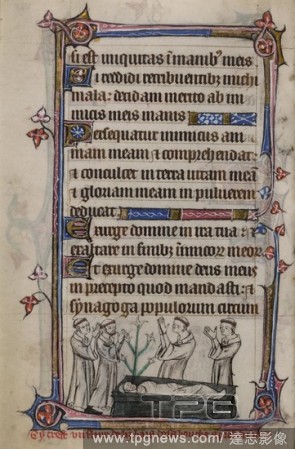 si est iniquitas ĩ manib' meis
Si reddidi retribuentibꝫ michi
mala: decidam merito ab ini
micis meis inanis
Persequatur inimicus ani
mam meam & comprehendat:
& conculcet in terra uitam meã
& gloriam meam in puluerem
deducat
Exurge domine in ira tua: &
exaltare in finibꝫ inimicoꝝ meoꝝ
Et exurge domine deus meus
in precepto quod mandasti: &
synagoga populorum circum
TPG
www.tpgnews.com/達志影像